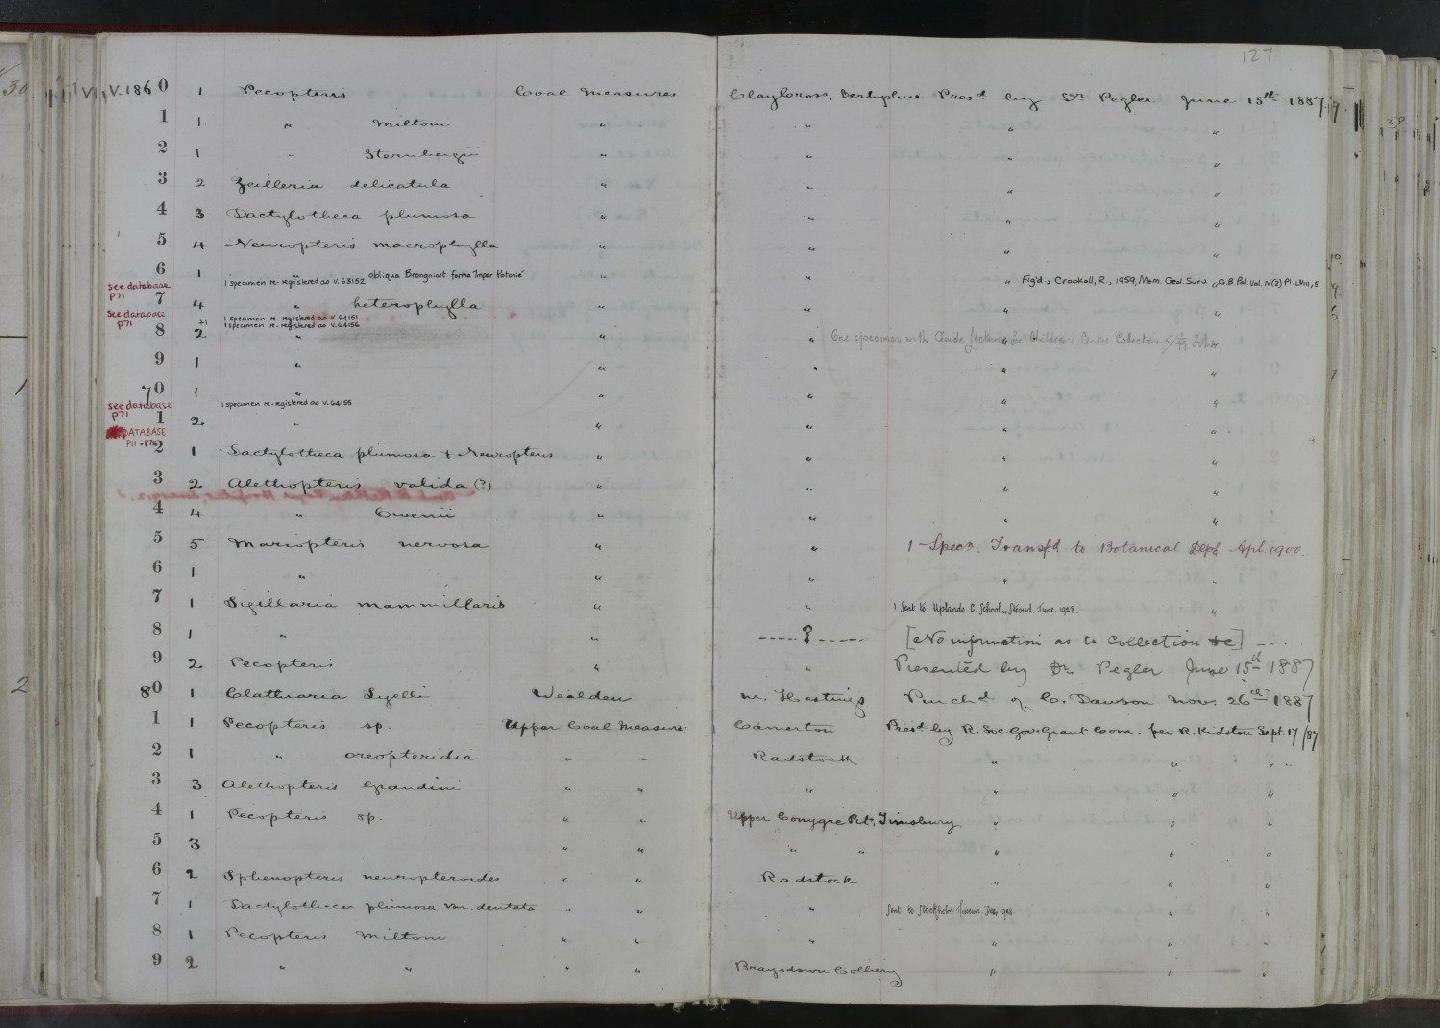 127
V.1860 1 Pecopteris Coal Measures Claycross, Derbyshire Pres^d by Dr Pegler June 15th 1887
1 1 " Miltoni " " " "
2 1 " Sternbergii " " " "
3 2 Zeilleria delicatula " " " "
4 3 Dactylotheca plumosa " " " "
5 4 Neuropteris macrophylla " " " "
6 1 " obliqua Brongniart forma impar Potonié " " " Fig'd., Crookall, R., 1959, Mem. Geol. Surv. G.B. Pal. Vol. IV(2) Pl. LVIII, 5
see database P71 1 specimen re-registered as V.63152
7 4 " heterophylla " " " "
see database P71 1 specimen re-registered as V.64151
1 specimen re-registered as V.64156
8 2 " " " One specimen with Children's Centre Collection
9 1 " " " " "
70 1 " " " " "
see database P71 1 specimen re-registered as V.64155
1 2 " " " " "
DATABASE
2 1 Dactylotheca plumosa + Neuropteris " " " "
3 2 Alethopteris valida (?) " " " "
4 4 " Owenii " " " "
5 5 Mariopteris nervosa " " 1 Specn. Transf'd to Botanical Dept Apl. 1900.
6 1 " " " " "
7 1 Sigillaria mammillaris " " 1 Sent to Uplands C. School, Stroud June. 1929. "
8 1 " " ----- ? ----- [No information as to collection &c] ---
9 2 Pecopteris " " Presented by Dr. Pegler June 15th 1887
80 1 Clathraria Lyelli Wealden nr. Hastings Purch^d of C. Dawson Nov. 26th 1887
1 1 Pecopteris sp. Upper Coal Measures Camerton Pres^d by R. Soc. Gov. Grant Com. per R. Kidston Sept. 17/87
2 1 " oreopteridia " " Radstock " " " "
3 3 Alethopteris Grandini " " " " " "
4 1 Pecopteris sp. " " Upper Conygre Pit, Timsbury " " "
5 3 " " " " " " "
6 2 Sphenopteris neuropteroides " " Radstock " " "
7 1 Dactylotheca plumosa var. dentata " " " Sent to Stockholm " "
8 1 Pecopteris Miltoni " " " " " "
9 2 " " " " Braysdown Colliery " " "